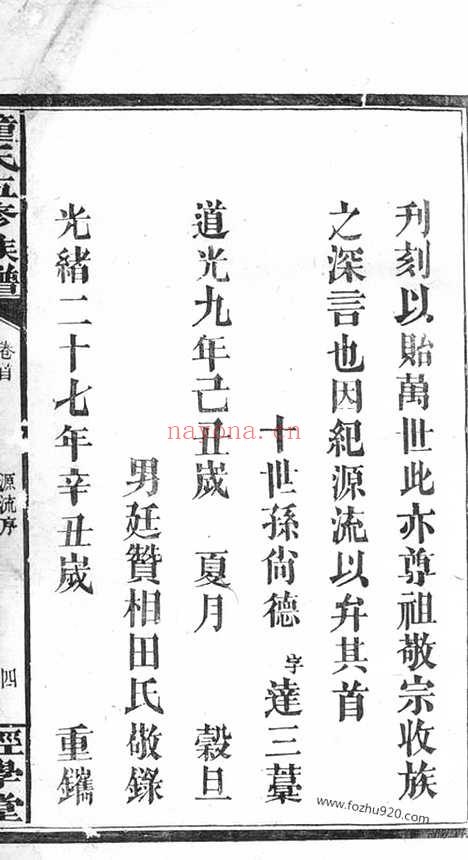 刋刻以貽萬世此亦尊祖敬宗收族
之深言也因紀源流以弁其首
十世孫尙德 字達三藁
道光九年己丑歲 夏月 穀旦
男廷贊相田氏敬錄
光緒二十七年辛丑歲 重鐫
童氏五修族譜 卷首 源流序 四 經學堂
nayona.cn
www.fozhu920.com